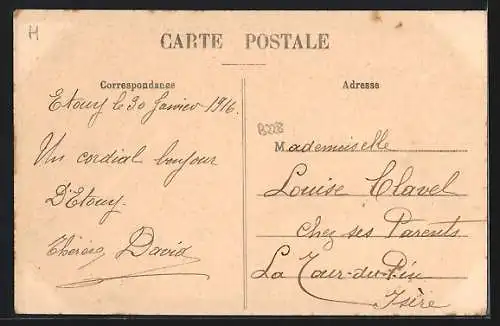 M
CARTE POSTALE
Correspondance
Adresse
Etouy le 30 Janvier 1916.
Un cordial bonjour
D'Etouy.
David
Mademoiselle
Louise Clavel
Chez ses Parents
La Tour-du-Pin
Isère